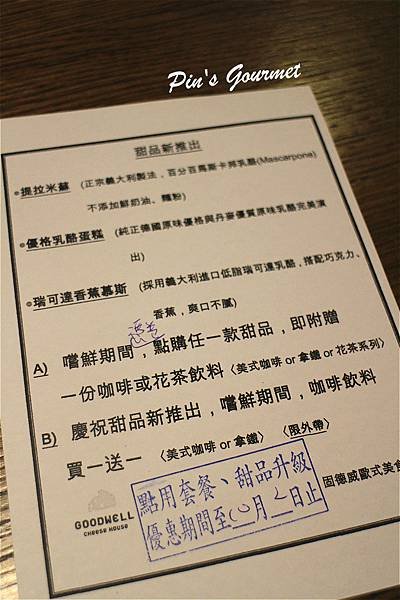 Pin's Gourmet
甜品新推出
●提拉米蘇 (正宗義大利製法，百分百馬斯卡邦乳酪(Mascarpone)
不添加鮮奶油、麵粉)
●優格乳酪蛋糕 (純正德國原味優格與丹麥優質原味乳酪完美演
出)
●瑞可達香蕉慕斯 (採用義大利進口低脂瑞可達乳酪，搭配巧克力、
香蕉，爽口不膩)
A) 嚐鮮期間，點購任一款甜品，即附贈
一份咖啡或花茶飲料〈美式咖啡 or 拿鐵 or 花茶系列〉
B) 慶祝甜品新推出，嚐鮮期間，咖啡飲料
買一送一 〈美式咖啡 or 拿鐵〉 〈限外帶〉
點用套餐、甜品升級
優惠期間至 月 日止
GOODWELL
CHEESE HOUSE
固德威歐式美食